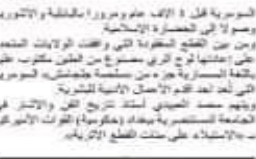 السومرية قبل ٤ آلاف عام ومرورا بالبابلية والآشورية
وصولا إلى الحضارة الإسلامية.
ومن بين القطع المنقودة التي وافقت الولايات المتحدة
على إعادتها لوح أثري مصنوع من الطين مكتوب عليه
باللغة المسمارية جزء من ملحمة جلجامش، السومرية
التي تُعد أحد أقدم الأعمال الأدبية للبشرية.
ويتهم محمد العبيدي أستاذ تاريخ الفن والآثار في
الجامعة المستنصرية ببغداد (حكومية) القوات الأميركية
بـ«الاستيلاء على مئات القطع الأثرية».